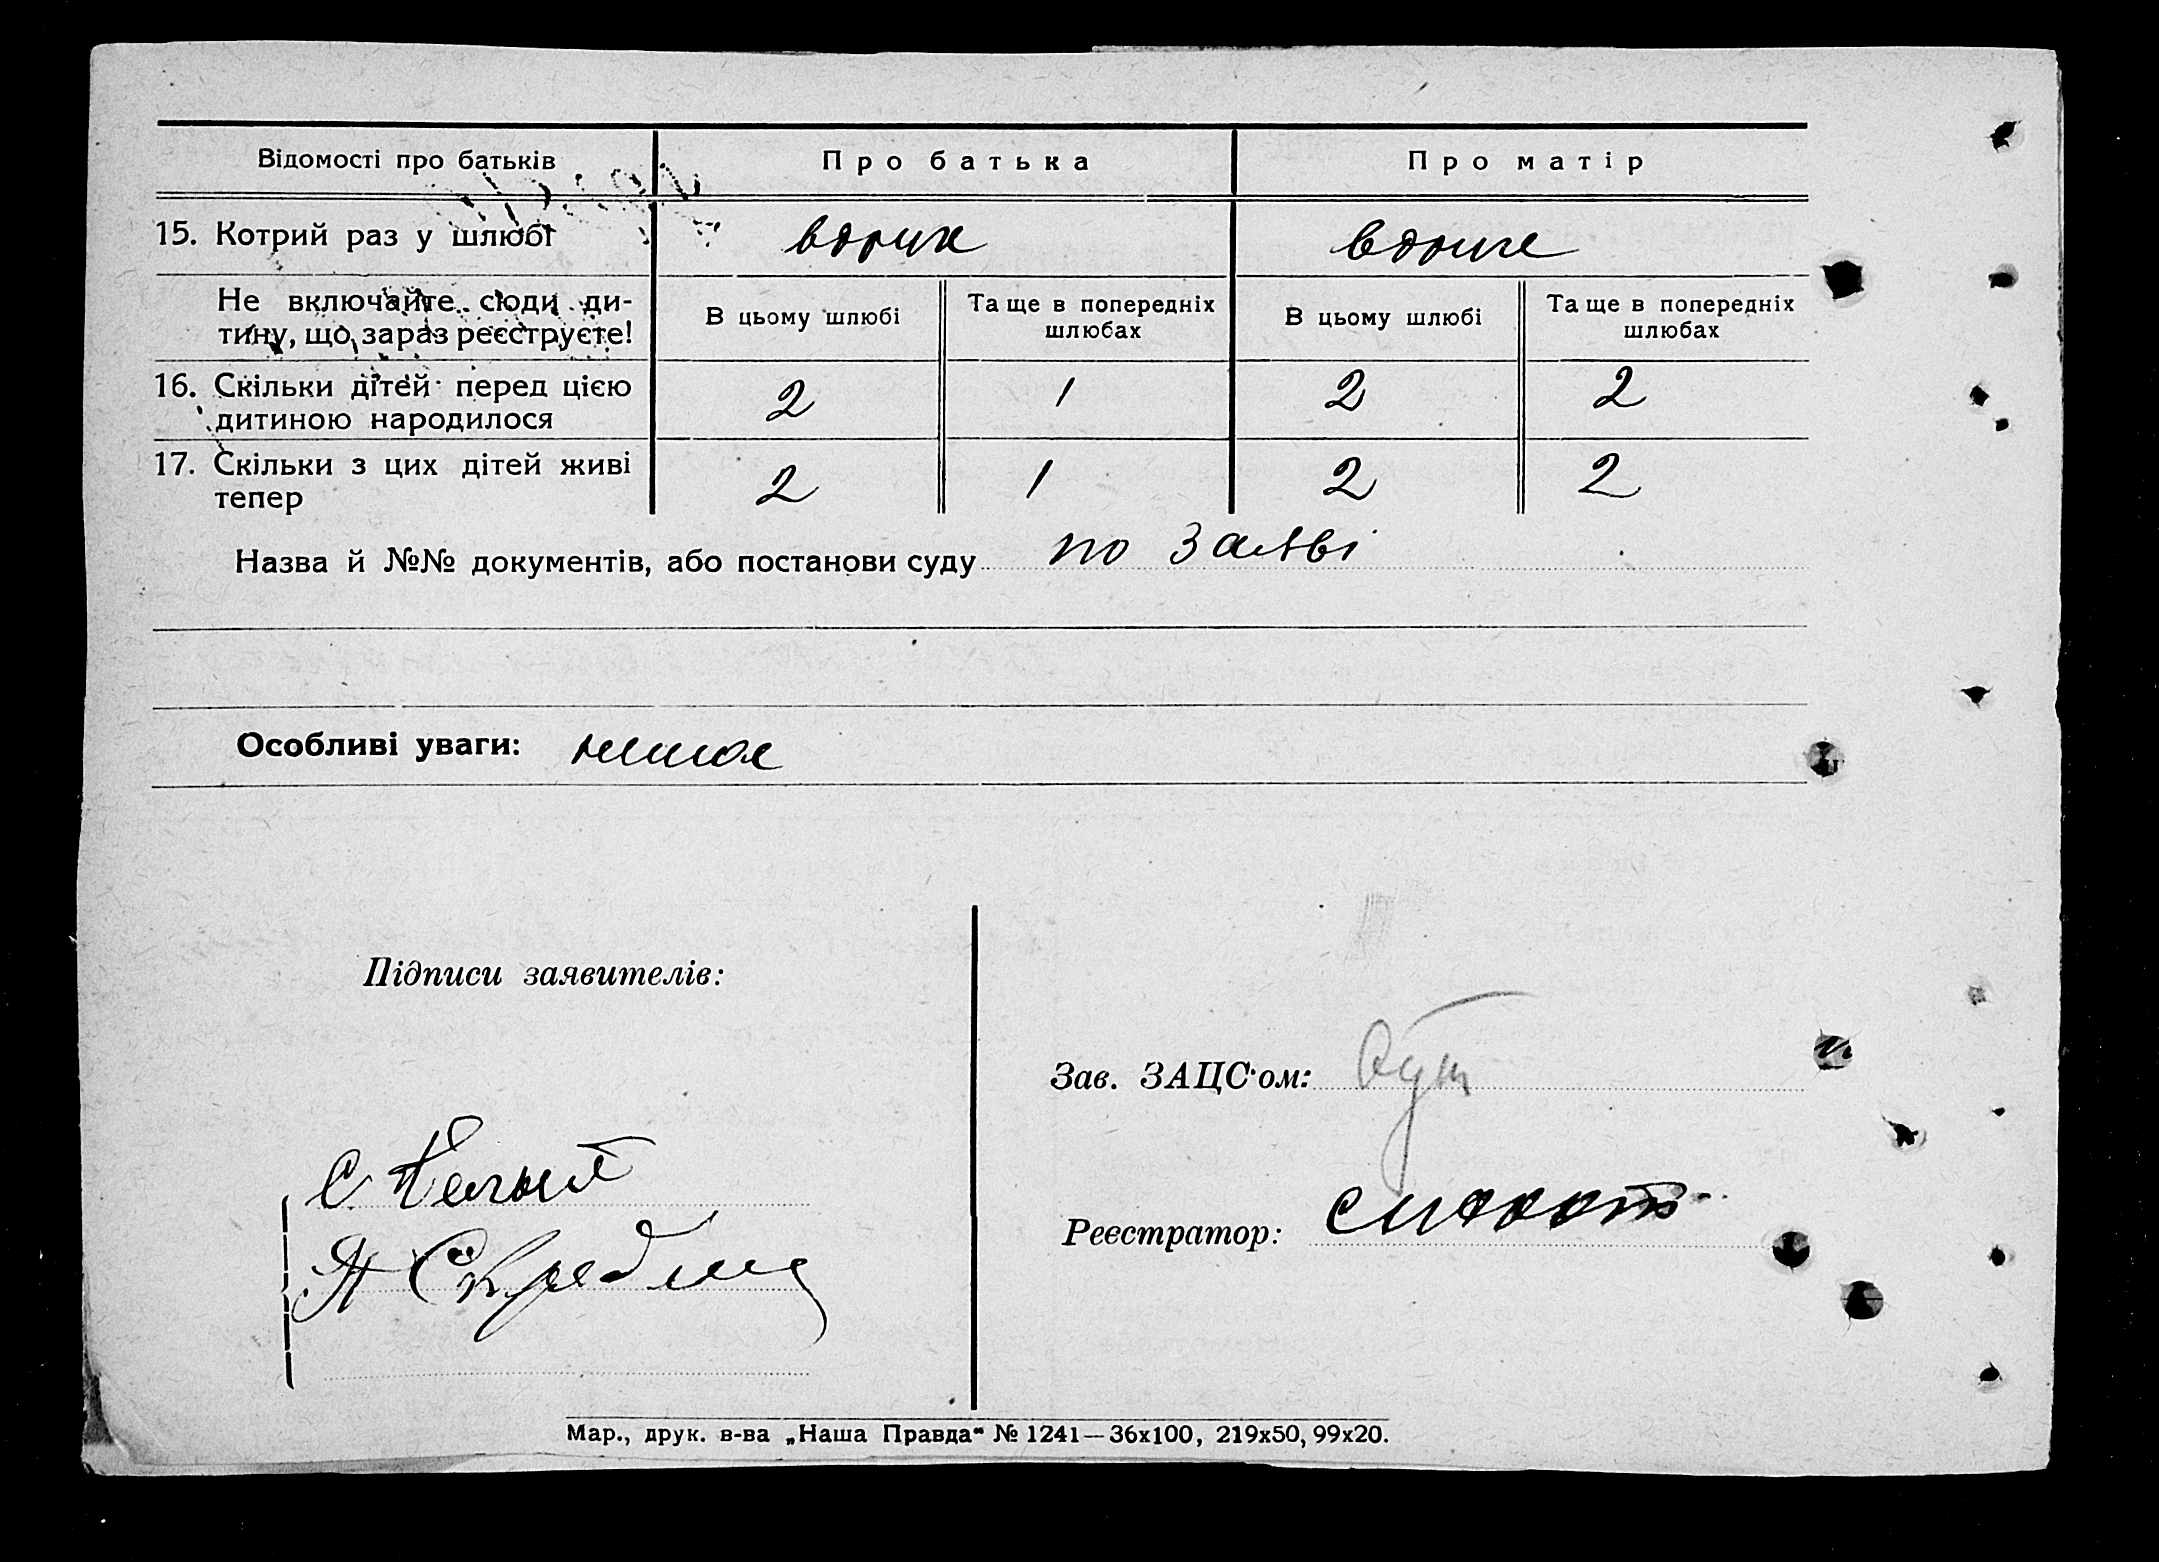 Відомості про батьків Про батька Про матір
15. Котрий раз у шлюбі вдруге вдруге
Не включайте сюди ди-
тину, що зараз реєструєте!
В цьому шлюбі Та ще в попередніх шлюбах В цьому шлюбі Та ще в попередніх шлюбах
16. Скільки дітей перед цією
дитиною народилося 2 1 2 2
17. Скільки з цих дітей живі
тепер 2 1 2 2
Назва й №№ документів, або постанови суду по заяві
Особливі уваги: немає
Підписи заявителів:
Зав. ЗАЦС'ом:
С.
Реєстратор:
Мар., друк. в-ва „Наша Правда" № 1241—36х100, 219х50, 99х20.